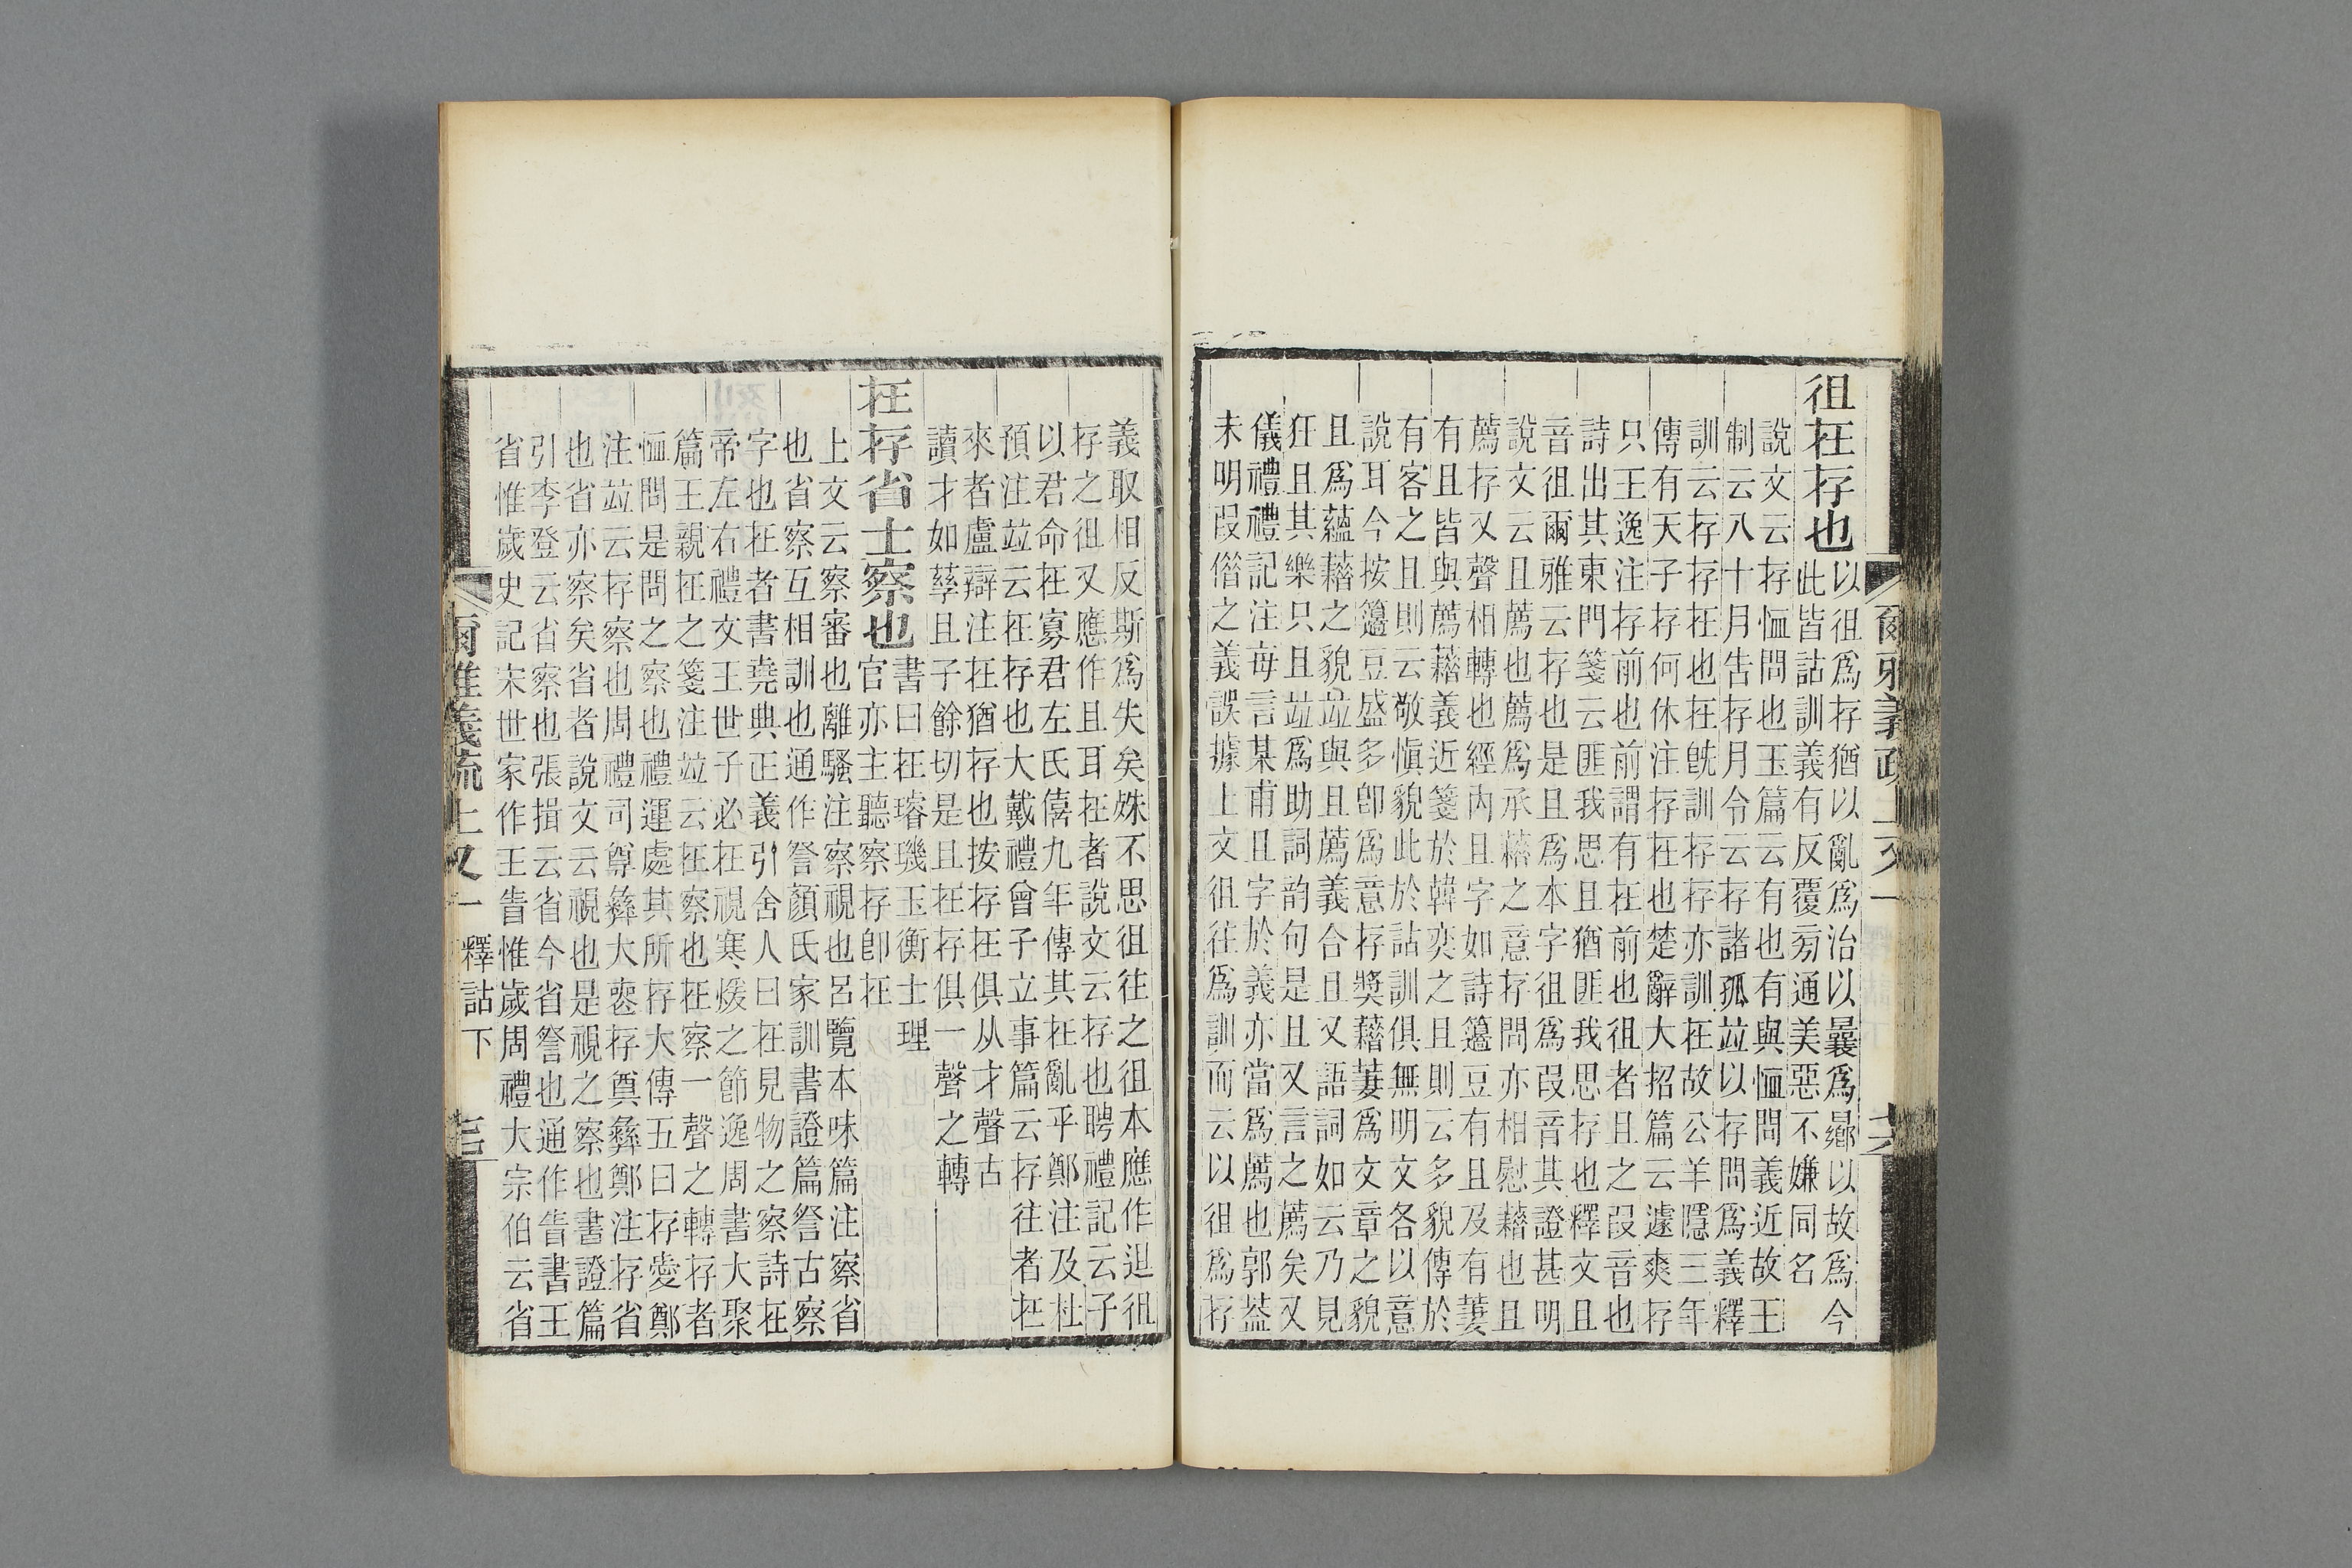 爾雅義疏上又一
徂在存也
以徂爲存猶以亂爲治以曩爲曏以故爲今
此皆詁訓義有反覆㫄通美惡不嫌同名
說文云存恤問也玉篇云有也有與恤問義近故王
制云八十月告存月令云存諸孤竝以存問爲義釋
訓云存存在也在旣訓存存亦訓在故公羊隱三年
傳有天子存何休注存在也楚辭大招篇云遽爽存
只王逸注存前也前謂有在前也徂者且之叚音也
詩出其東門箋云匪我思且猶匪我思存也釋文且
音徂爾雅云存也是且爲本字徂爲叚音其證甚明
說文云且薦也薦爲承藉之意存問亦相慰藉也且
薦存又聲相轉也經內且字如詩籩豆有且及有萋
有且皆與薦藉義近箋於韓奕之且則云多貌傳於
有客之且則云敬愼貌此於詁訓俱無明文各以意
說耳今按籩豆盛多卽爲意存奬藉萋爲文章之貌
且爲蘊藉之貌竝與且薦義合且又語詞如云乃見
狂且其樂只且竝爲助詞韵句是且又言之薦矣又
儀禮禮記注每言某甫且字於義亦當爲薦也郭葢
未明叚借之義誤據上文徂往爲訓而云以徂爲存
義取相反斯爲失矣姝不思徂往之徂本應作迌徂
存之徂又應作且耳在者說文云存也聘禮記云子
以君命在寡君左氏僖九年傳其在亂乎鄭注及杜
預注竝云在存也大戴禮曾子立事篇云存往者在
來者盧辯注在猶存也按存在俱从才聲古
讀才如孳且子餘切是且在存俱一聲之轉
在存省士察也
書曰在璿璣玉衡士理
官亦主聽察存卽在
上文云察審也離騷注察視也呂覽本味篇注察省
也省察互相訓也通作詧顏氏家訓書證篇詧古察
字也在者書堯典正義引舍人曰在見物之察詩在
帝左右禮文王世子必在視寒煖之節逸周書大聚
篇王親在之箋注竝云在察也在察一聲之轉存者
恤問是問之察也禮運處其所存大傳五曰存愛鄭
注竝云存察也周禮司尊彝大喪存奠彝鄭注存省
也省亦察矣省者說文云視也是視之察也書證篇
引李登云省察也張揖云省今省詧也通作眚書王
省惟歲史記宋世家作王眚惟歲周禮大宗伯云省
爾雅義疏上又一　釋詁下